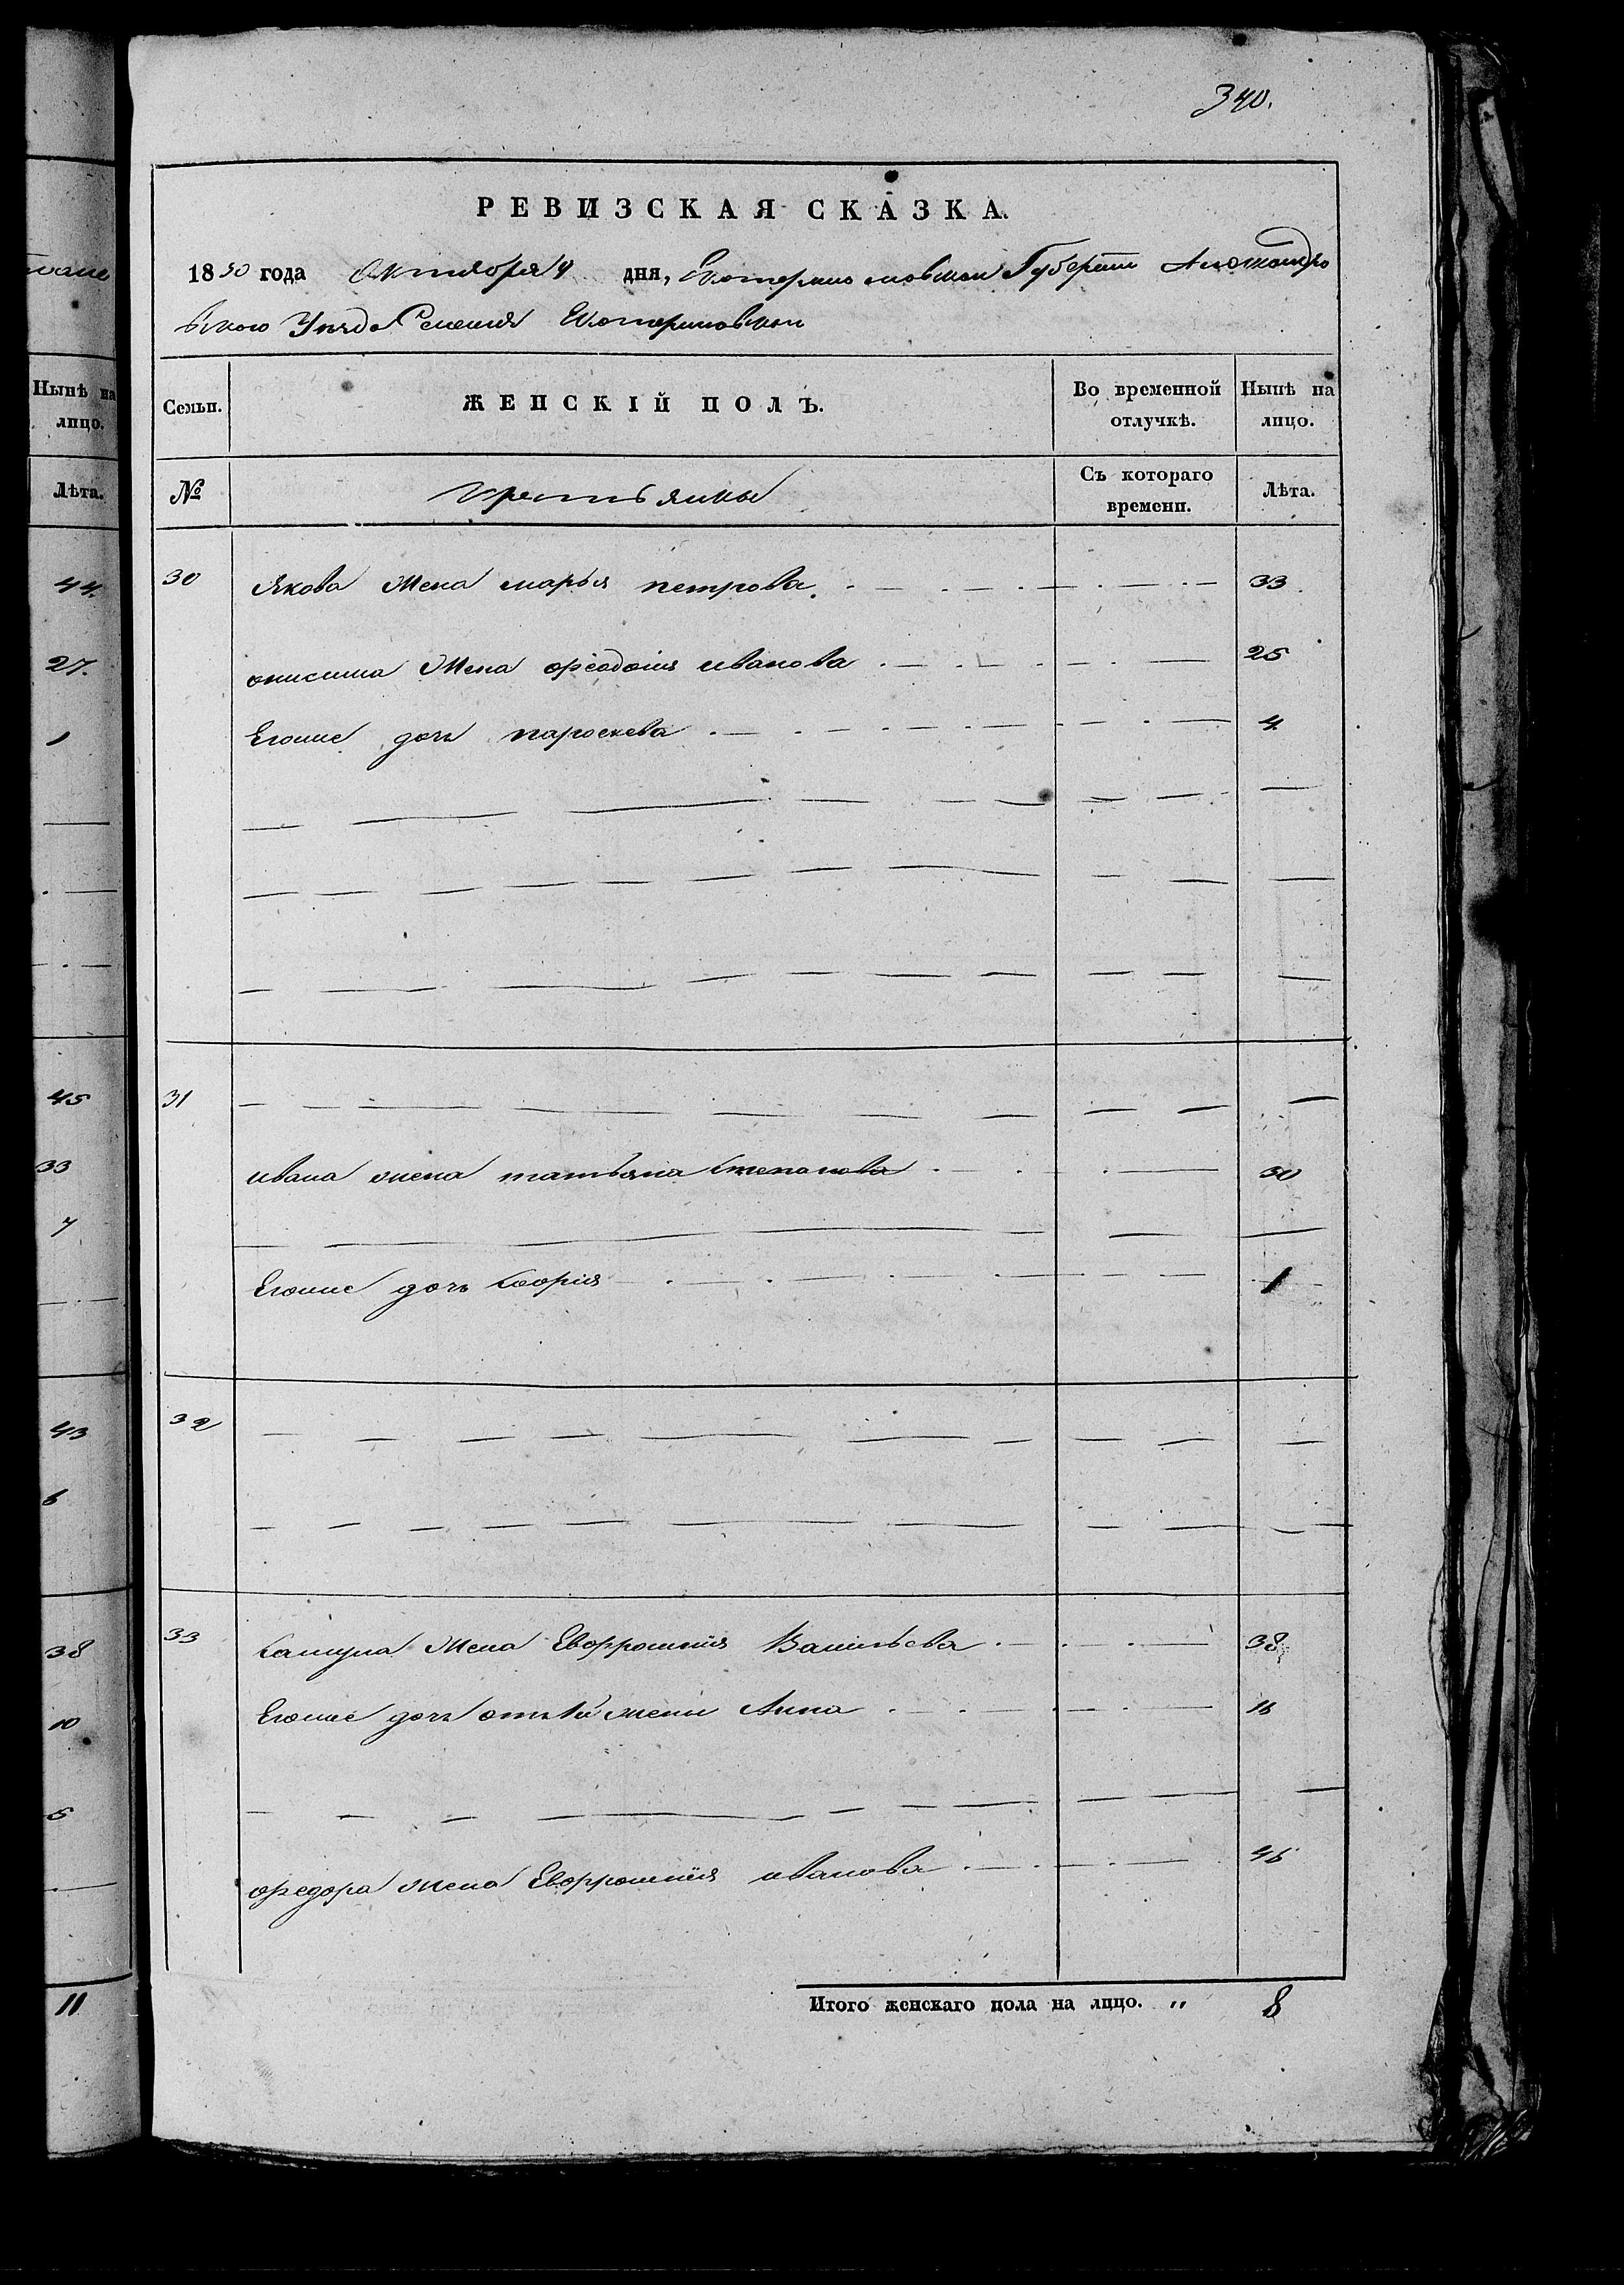 340.
РЕВИЗСКАЯ СКАЗКА.
1850 года Октября 4 дня, Екатеринославской Губернии Александро
вского Уезда Селения Екатериновки
Нынѣ на лицо.
Лѣта.
44.
27.
1
45
33
7
43
6
38
10
5
11
Семьи. ЖЕНСКІЙ ПОЛЪ. Во временной отлучкѣ. Нынѣ на лицо.
№ крестьянки Съ котораго времени. Лѣта.
30 Якова Жена марья петрова 33
онисима Жена феодосия иванова 25
Егоже дочь параскева 4
31
ивана жена татьяна степанова 30
Егоже дочь 1
32
33 Жена Евфросиния Васильева 38
Егоже дочь жени Анна 16
федора жена Евфросиния иванова 46
Итого женскаго пола на лицо. „ 8